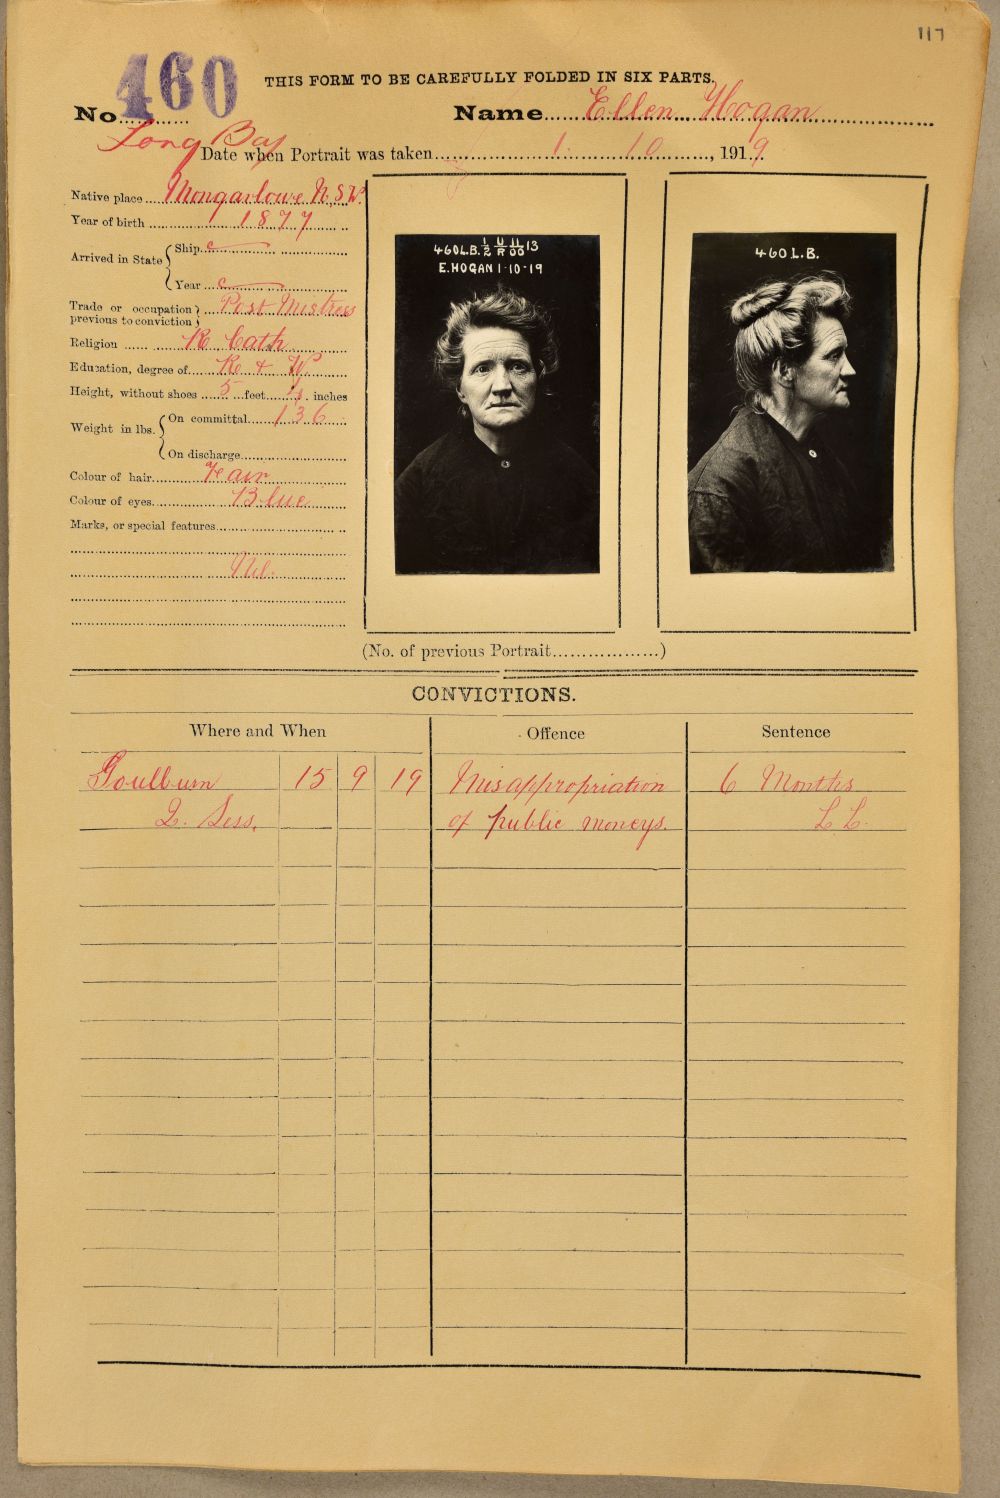 117
460
THIS FORM TO BE CAREFULLY FOLDED IN SIX PARTS.
No. Name Ellen Hogan
Long Bay
Date when Portrait was taken 1. 10 , 1919.
Native place Mongarlowe N.S.W.
Year of birth 1877
Arrived in State { Ship
Year
Trade or occupation previous to conviction } Post Mistress
Religion R. Cath
Education, degree of R + W.
Height, without shoes 5 feet inches
Weight in lbs. { On committal 136
On discharge
Colour of hair Fair
Colour of eyes Blue
Marks, or special features
Nil.
460L.B. 13
E.HOGAN 1-10-19
460 L.B.
(No. of previous Portrait )
CONVICTIONS.
Where and When Offence Sentence
Goulburn 15 9 19 Misappropriation 6 Months
Q. Sess. of public moneys. L.L.